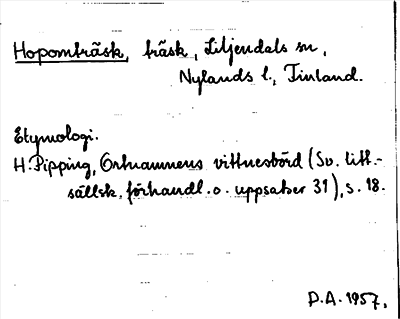 Hopomträsk, träsk, Liljendals sn,
Nylands l., Finland.
Etymologi.
H. Pipping, Ortnamnens vittnesbörd (Sv. litt.-
sällsk. förhandl. o. uppsatser 31), s. 18.
P.A. 1957.